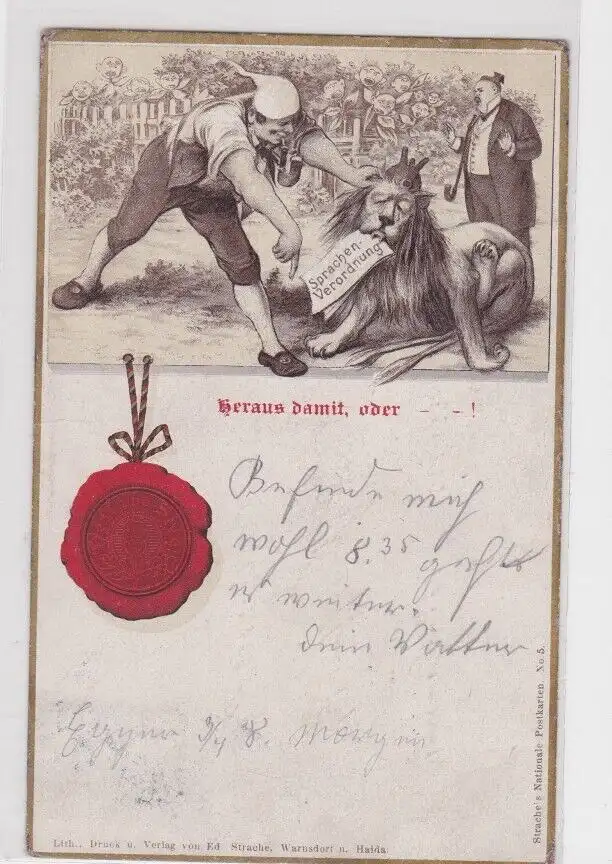 Sprachen-
Verordnung
Heraus damit, oder – – !
Befinde mich
wohl 8.35 geht
es weiter.
dein Vatter
8. Morgen
Strache's Nationale Postkarten. No 5.
Lith., Druck u. Verlag von Ed Strache, Warnsdorf u. Haida.